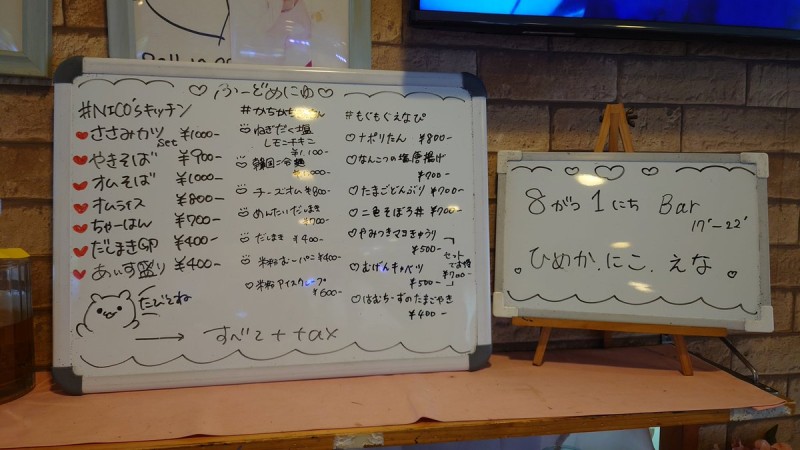 ふーどめにゅ
#NICO'sキッチン
ささみカツ set ¥1000-
やきそば ¥900-
オムそば ¥1000-
オムライス ¥800-
ちゃーはん ¥700-
だしまき卵 ¥400-
あいす盛り ¥400-
たべてね
ねぎだく塩
レモンチキン
¥1,100-
韓国冷麺
チーズオム ¥800-
めんたいだしまき
¥700
だしまき ¥400-
¥400-
米粉アイスクレープ
¥600-
#もぐもぐえなぴ
ナポリたん ¥800-
なんこつの塩唐揚げ
¥700-
たまごどんぶり ¥700-
二色そぼろ丼 ¥700-
やみつきマヨきゅうり
¥500-
むげんキャベツ
¥500-
セットで
¥700-
はむちーずのたまごやき
¥400-
すべて + tax
8がつ1にち Bar
17-22
ひめか.にこ.えな